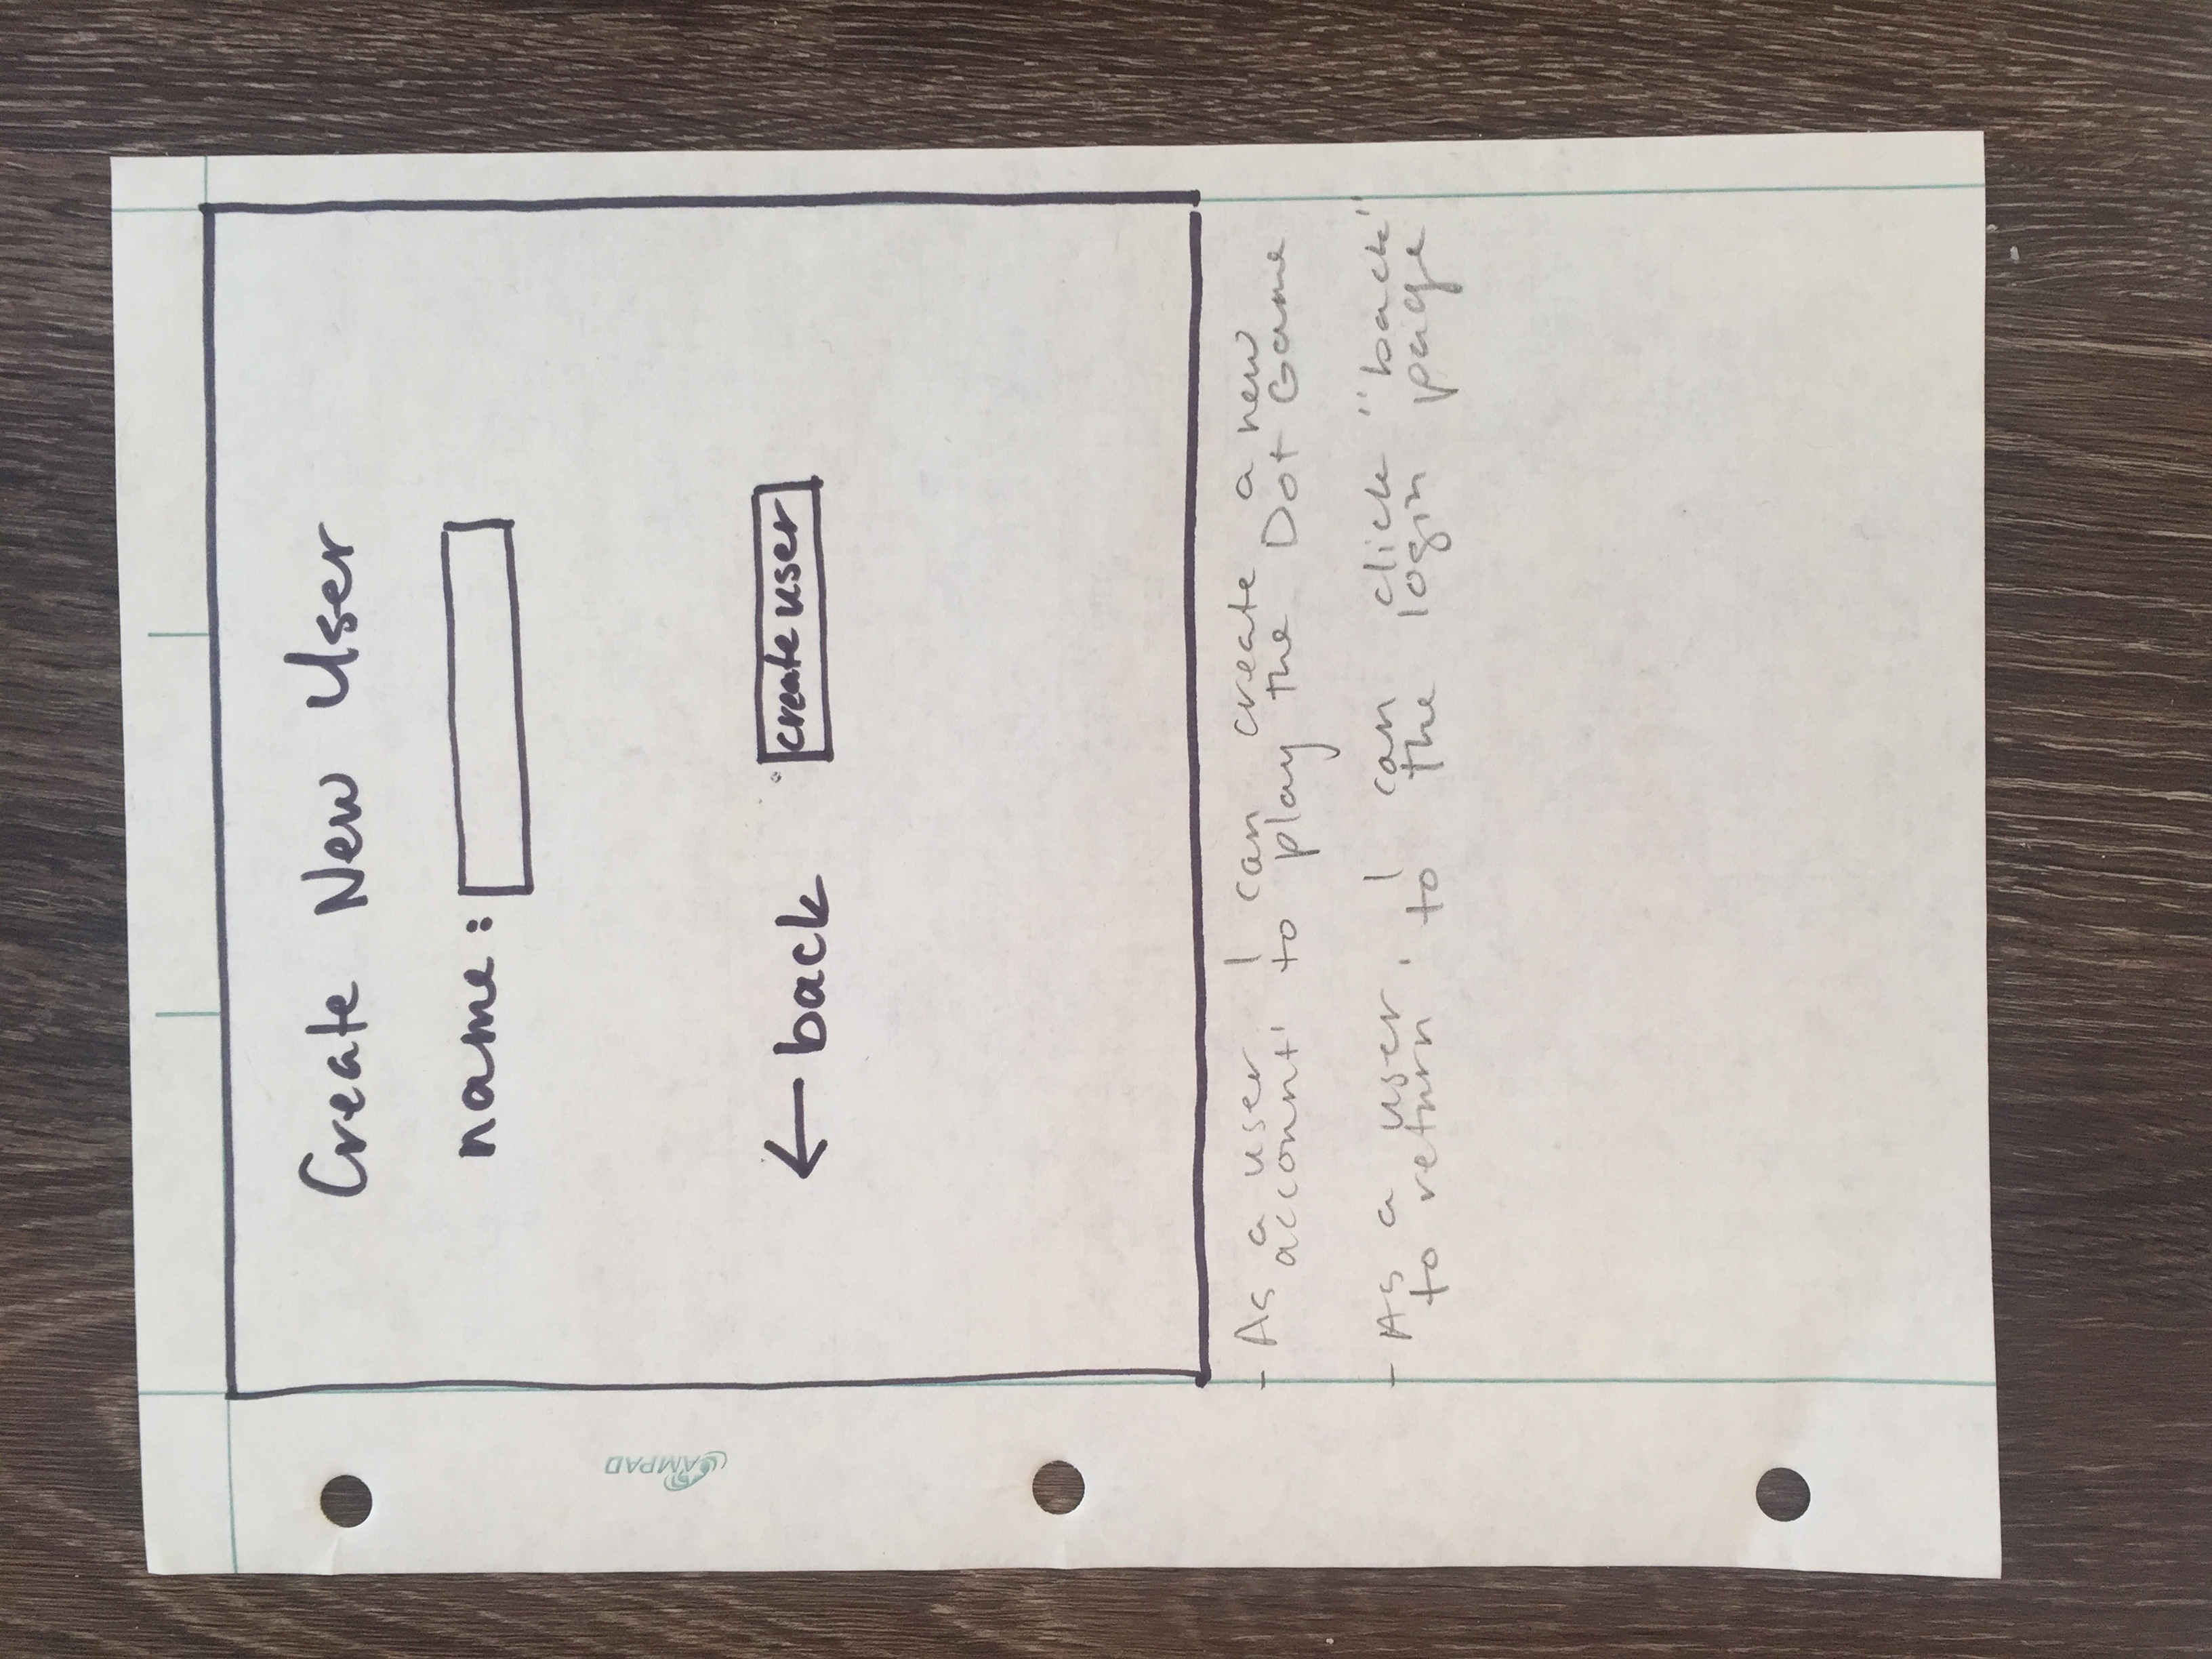 Create New User
name:
← back
create user
AMPAD
- As a user I can create a new
account to play the Dot Game
- As a user, I can click "back"
to return to the login page